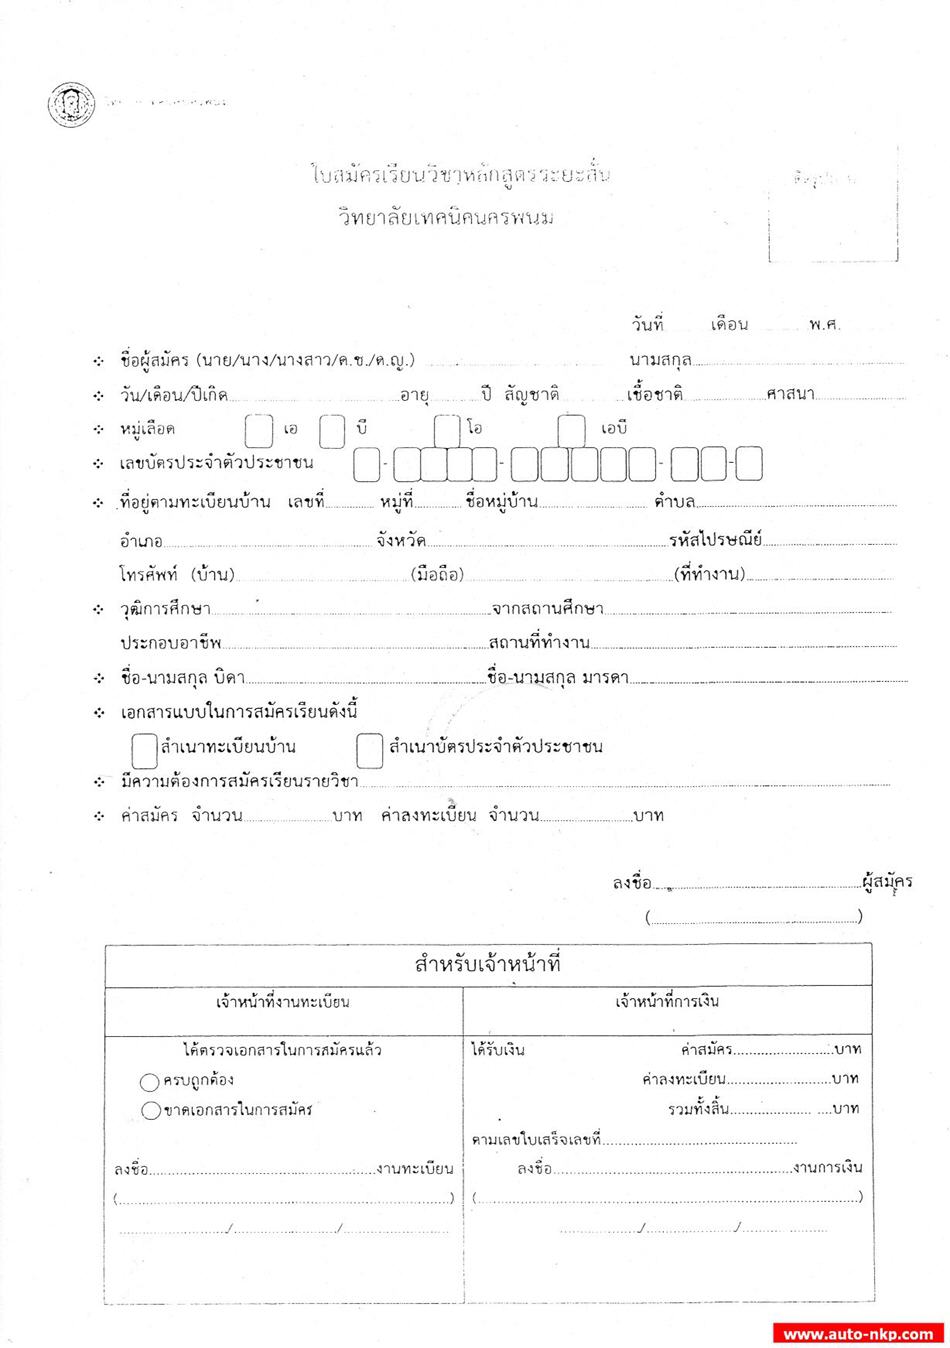 ใบสมัครเรียนวิชาหลักสูตรระยะสั้น
วิทยาลัยเทคนิคนครพนม
วันที่ เดือน พ.ศ.
ชื่อผู้สมัคร (นาย/นาง/นางสาว/ด.ช./ด.ญ.) นามสกุล
วัน/เดือน/ปีเกิด อายุ ปี สัญชาติ เชื้อชาติ ศาสนา
หมู่เลือด เอ บี โอ เอบี
เลขบัตรประจำตัวประชาชน - - - -
ที่อยู่ตามทะเบียนบ้าน เลขที่ หมู่ที่ ชื่อหมู่บ้าน ตำบล
อำเภอ จังหวัด รหัสไปรษณีย์
โทรศัพท์ (บ้าน) (มือถือ) (ที่ทำงาน)
วุฒิการศึกษา จากสถานศึกษา
ประกอบอาชีพ สถานที่ทำงาน
ชื่อ-นามสกุล บิดา ชื่อ-นามสกุล มารดา
เอกสารแบบในการสมัครเรียนดังนี้
สำเนาทะเบียนบ้าน สำเนาบัตรประจำตัวประชาชน
มีความต้องการสมัครเรียนรายวิชา
ค่าสมัคร จำนวน บาท ค่าลงทะเบียน จำนวน บาท
ลงชื่อ ผู้สมัคร
( )
สำหรับเจ้าหน้าที่
เจ้าหน้าที่งานทะเบียน เจ้าหน้าที่การเงิน
ได้ตรวจเอกสารในการสมัครแล้ว ได้รับเงิน ค่าสมัคร บาท
ครบถูกต้อง ค่าลงทะเบียน บาท
ขาดเอกสารในการสมัคร รวมทั้งสิ้น บาท
ตามเลขใบเสร็จเลขที่
ลงชื่อ งานทะเบียน ลงชื่อ งานการเงิน
( ) ( )
/ / / /
www.auto-nkp.com